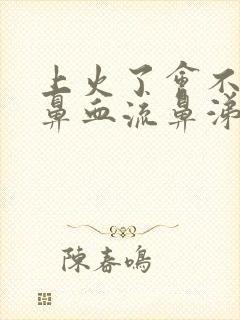 上火了會不
鼻血流鼻涕
陳春鳴